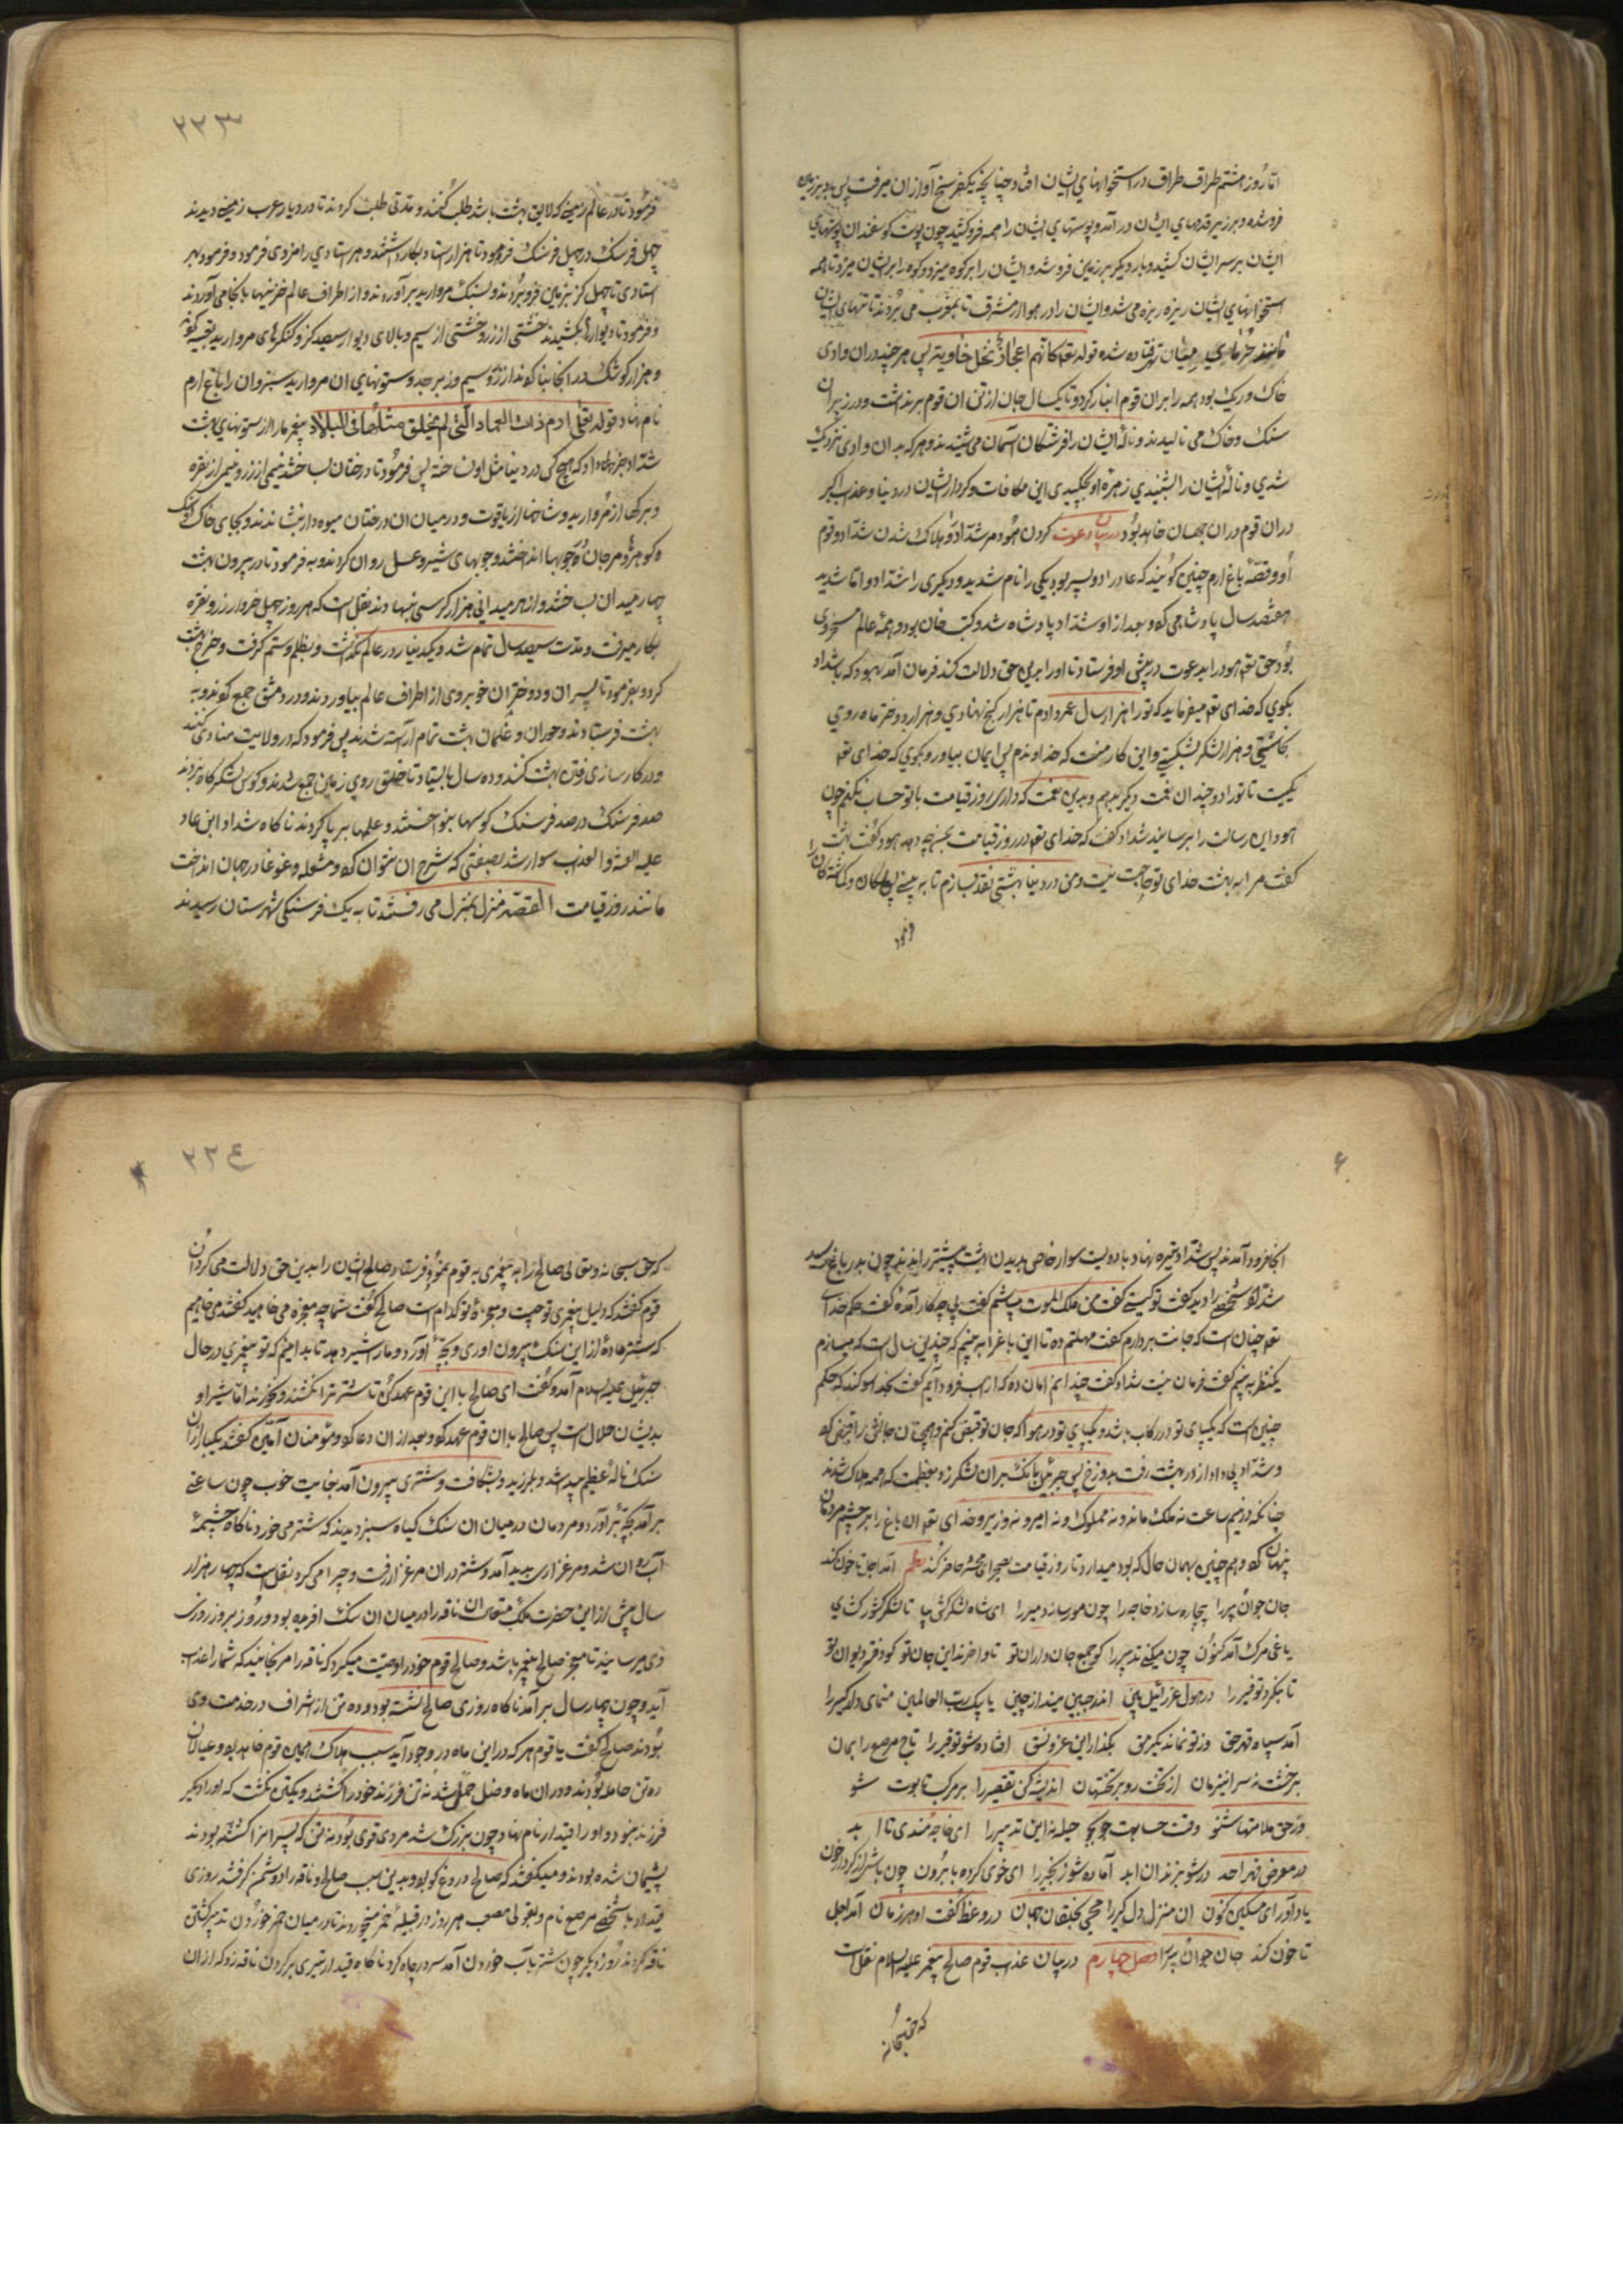 اما روز هشتم طراق طراق در استخوانهای ایشان افتاد چنانچه یکفرسخ آواز ان میرفت پس باد بزیر زمین
فروشده و بر زیر قدمهای ایشان در آمد و پوستهای ایشان را همه فرو کشید چون پوست کوسفندان پوستهای
ایشان بر سر ایشان کشید و بار دیکر بر زمین فرو شد و ایشان را بر کوه میزد و کوه را بر ایشان میزد تا همه
استخوانهای ایشان ریزه ریزه می شد و ایشان را در هوا از مشرق تا بمغرب می بردند تا تنهای ایشان
مانند خرمای میان تهی افتاده شده قوله تعه کانهم اعجاز نخل خاویه پس هر چند دران وادی
خاک و ریک بود همه را بران قوم انبار کرد و تا یکسال جان از تن ان قوم بر نداشت و در زیر ان
سنک و خاک می نالیدند و نالهٔ ایشان را فرشتکان آسمان می شنیدند و هر که بدان وادی نزدیک
شدی و نالهٔ ایشان را شنیدی زهرهٔ او بچکیدی این مکافات و کردار ایشان در دنیا و عذاب اکبر
دران قوم دران جهان خاهد بود در بیان دعوت کردن هود مر شداد و هلاک شدن شداد و قوم
او و قصهٔ باغ ارم چنین کویند که عاد را دو پسر بود یکی را نام شدید و دیکری را شداد و اما شدید
هفتصد سال پادشاهی کرد و بعد از او شداد پادشاه شد و کتب خان بود و همهٔ عالم مسخر وی
بود حق تعه هود را بدعوت در پیش او فرستاد تا او را براه حق دلالت کند فرمان آمد بهود که با شداد
بکوی که خدای تعه میفرماید که تو را هزار سال عمر دادم تا هزار کنج نهادی و هزار دختر ماه روی
بخاستی و هزار لشکر بشکستی و این کار منست که خداوندم پس ایمان بیاور و بکوی که خدای تعه
یکیست تا تو را دو چندان نعمت دیکر بدهم و بدین نعمت که داری روز قیامت با تو حساب نکنم چون
هود این رسالت را برسانید شداد کفت که خدای تعه در روز قیامت بمن چه دهد هود کفت بهشت
کفت مرا به بهشت خدای تو حاجت نیست و من در دنیا بهشتی نقد بسازم تا به بینی پس ملکان و کماشتکان را
فرمود تا در عالم زمینی که لایق بهشت باشد طلب کنند و مدتی طلب کردند تا در دیار عرب زمینی دیدند
چهل فرسنک در چهل فرسنک فرمود تا هزار استاد بکار داشتند و هر استادی را مزدی فرمود و فرمود بهر
استادی تا چهل کز بزمین فرو بردند و بسنک مروارید بر آوردند و از اطراف عالم خزینها بانجا می آوردند
و فرمود تا دیوارها بکشیدند خشتی از زر و خشتی از سیم و بالای دیوار سیصد کز و کنکرهای مروارید تعبیه کردند
و هزار کوشک در انجا بنا کردند از زر و سیم و زبرجد و ستونهای ان مروارید سبز و ان را باغ ارم
نام نهاد قوله تعالی ارم ذات العماد التی لم یخلق مثلها فی البلاد پیغمبر ما را از ستونهای بهشت
شداد خبر داد که هیچ کس در دنیا مثل او نساخته پس فرمود تا درختان بساختند نیمی از زر و نیمی از نقره
و برکها از مروارید و شاخها از یاقوت و در میان ان درختان میوه دار بنشاندند و بجای خاک مشک
و کوهر و مرجان و جویها انداختند و جویهای شیر و عسل روان کردند و به فرمود تا در بیرون بهشت
چهار میدان بساختند و از هر میدانی هزار کرسی بنهادند نقل است که هر روز چهل خروار زر و نقره
بکار میرفت و مدت سیصد سال تمام شد و یکدینار در عالم نکذاشت و بظلم و ستم کرفت و خرج بهشت
کرد و بفرمود تا پسران و دختران خوبروی از اطراف عالم بیاوردند و در دمشق جمع کردند و به
بهشت فرستادند و حوران و غلمان بهشت تمام آراسته شدند پس فرمود که در ولایت منادی کنند
و در کارسازی رفتن بهشت کنند و ده سال بایستاد تا خلق روی زمین جمع شدند و کوس لشکرکاه بزدند
صد فرسنک در صد فرسنک کوسها بنواختند و علمها بر پا کردند ناکاه شداد ابن عاد
علیه اللعنة والعذاب سوار شد بصفتی که شرح ان نتوان کرد و مشعله و غوغا در جهان انداخت
مانند روز قیامت القصه منزل بمنزل می رفتند تا به یک فرسنکی شهرستان رسیدند
انجا فرود آمدند پس شداد خیره نهاد با دویست سوار خاص بدیدن بهشت پیشتر راندند چون بدر باغ رسید
شداد شخصی را دید کفت تو کیستی کفت من ملک الموت میباشم کفت پی چه کار آمدهٔ کفت حکم خدای
تعه چنان است که جانت بردارم کفت مهلتم ده تا این باغرا به بینم که چندین سال است که میسازم
یکنظر به بینم کفت فرمان نیست شداد کفت چندانم امان ده که از اسب فرود آیم کفت نه کند که حکم
چنین است که یکپای تو در رکاب باشد و یکپای تو در هوا که جان تو قبض کنم و همچنان جانش را قبض کرد
و شداد پی داد از در بهشت رفت بدوزخ پس جبرئیل بانک بران لشکر زد بعظمت که همه هلاک شدند
چنانکه در نیم ساعت نه ملک ماند و نه مملوک و نه امیر و نه وزیر و خدای تعه ان باغ را بر چشم مردمان
پنهان کرد و هم چنین بهمان حال که بود میدارد تا روز قیامت بصحرای محشر حاضر کند نظم آمد اجل تا خون کند
جان جوان پیر را بیچاره سازد خاجه را چون مور سازد میر را ای شاه لشکرکش بیا تا لشکر کشور کشی
یاغی مرک آمد کنون چون میکنی تدبیر را کو جمع جان داران تو تا وا خرند این جان تو کو دفتر دیوان تو
تا بنکرد توفیر را در هول عزرائیل بین اندر جبین مینداز چین یا پیک رب العالمین منمای دل دلکیر را
آمد سپاه قهر حق وز تو نماند یک رمق بکذار این عز و نسق افتاده شو توقیر را تاج مرصع را بمان
بر خشت نه سر این زمان از تخت رو بر تخت نهان اندیشه کن تقصیر را بر مرکب تابوت شو
وز حق ملامتها شنو وقت حسابت جو بجو حیله نه این تدبیر را ای خاجه مندی تا ابد
در معرض قهر احد در شو بزندان ابد آماده شو زنجیر را ای خوی کرده با برون چون باشی از کردار خون
یاد آور ای مسکین کنون ان منزل دلکیر را محیی بخلقان جهان در وعظ کفت او هر زمان آمد اجل
تا خون کند جان جوان پیر را فصل چهارم در بیان عذاب قوم صالح پیغمبر علیه السلام نقل است
که حق سبحانه
که حق سبحانه و تعالی صالح را به پیغمبری به قوم ثمود فرستاد صالح ایشان را بدین حق دلالت می کرد ان
قوم کفتند که دلیل پیغمبری تو چیست و معجزهٔ تو کدام است صالح کفت شما چه معجزه می خاهید کفتند می خاهیم
که شتر مادهٔ از این سنک بیرون اوری و بچهٔ آورد و ما را شیر دهد تا بدانیم که تو پیغمبری در حال
جبرئیل علیه السلام آمد و کفت ای صالح با این قوم عهد کن تا شتر ترا نکشند و نخورند اما شیر او
بدیشان حلال است پس صالح با ان قوم عهد کرد و بعد از ان دعا کرد و مؤمنان آمین کفتند یکبار از ان
سنک نالهٔ عظیم پیدا شد و بلرزید و بشکافت و شتری بیرون آمد بغایت خوب چون ساعتی
بر آمد بچهٔ بر آورد و مردمان در میان ان سنک کیاه سبز دیدند که شتر می خورد ناکاه چشمهٔ
آب روان شد و مرغزاری پدید آمد و شتر دران مرغزار رفت و چرا می کرد نقل است که چهار هزار
سال پیش از این حضرت ملک متعان ان ناقه را در میان ان سنک افریده بود و روز بروز روزی
وی میرسانید تا معجز صالح پیغمبر باشد و صالح قوم خود را وصیت میکرد که ناقه را مرنجانید که شما را عذاب
آید و چون چهار سال بر آمد ناکاه روزی صالح نشسته بود و ده تن از اشراف در خدمت وی
بودند صالح کفت یا قوم هر که در این ماه در وجود آید سبب هلاک همین قوم خاهد بود و عیالان
ده تن حامله بودند و دران ماه وضع حمل شد نه تن فرزند خود را کشتند و یکتن نکشت که او را دیکر
فرزند نبود و او را قیدار نام نهاد چون بزرک شد مردی قوی بود نه تن که پسرانرا کشته بودند
پشیمان شده بودند و میکفتند که صالح دروغ کو بود و بدین سبب صالح و ناقه را دوشمن کرفتند روزی
قیدار با شخصی مرصع نام و بقولی مصعب هر روز در قبیله خمر میخوردند تا در میان خمر خوردن تدبیر کشتن
ناقه کردند روز دیکر چون شتر با آب خوردن آمد سر در چاه کرد ناکاه قیدار تیری بر کردن ناقه زد که از ان